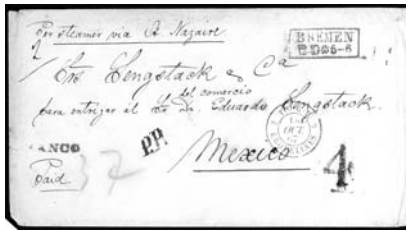 Per steamer via St Nazaire
BREMEN
Sres Lengstack & Ca
del comercio
para entregar al Sr Dn. Eduardo Lengstack.
OCT
ANCO
P.P.
Mexico
4
Paid
37